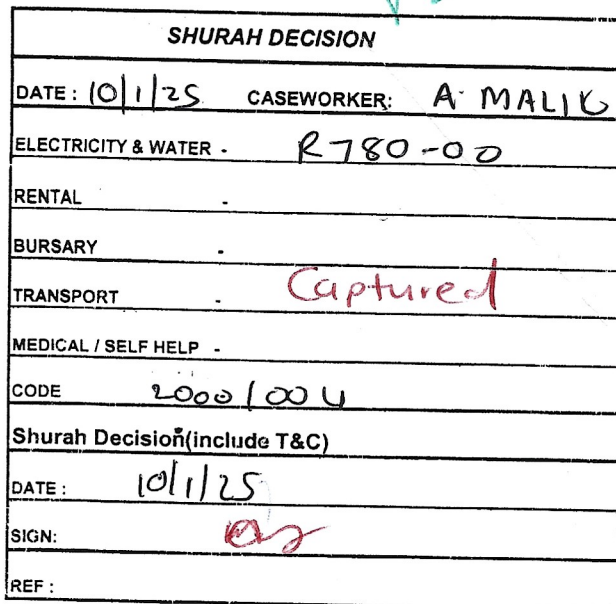 SHURAH DECISION
DATE : 10/1/25 CASEWORKER: A. MALIK
ELECTRICITY & WATER - R780-00
RENTAL -
BURSARY -
TRANSPORT - Captured
MEDICAL / SELF HELP -
CODE 2000/004
Shurah Decision(include T&C)
DATE : 10/1/25
SIGN:
REF :